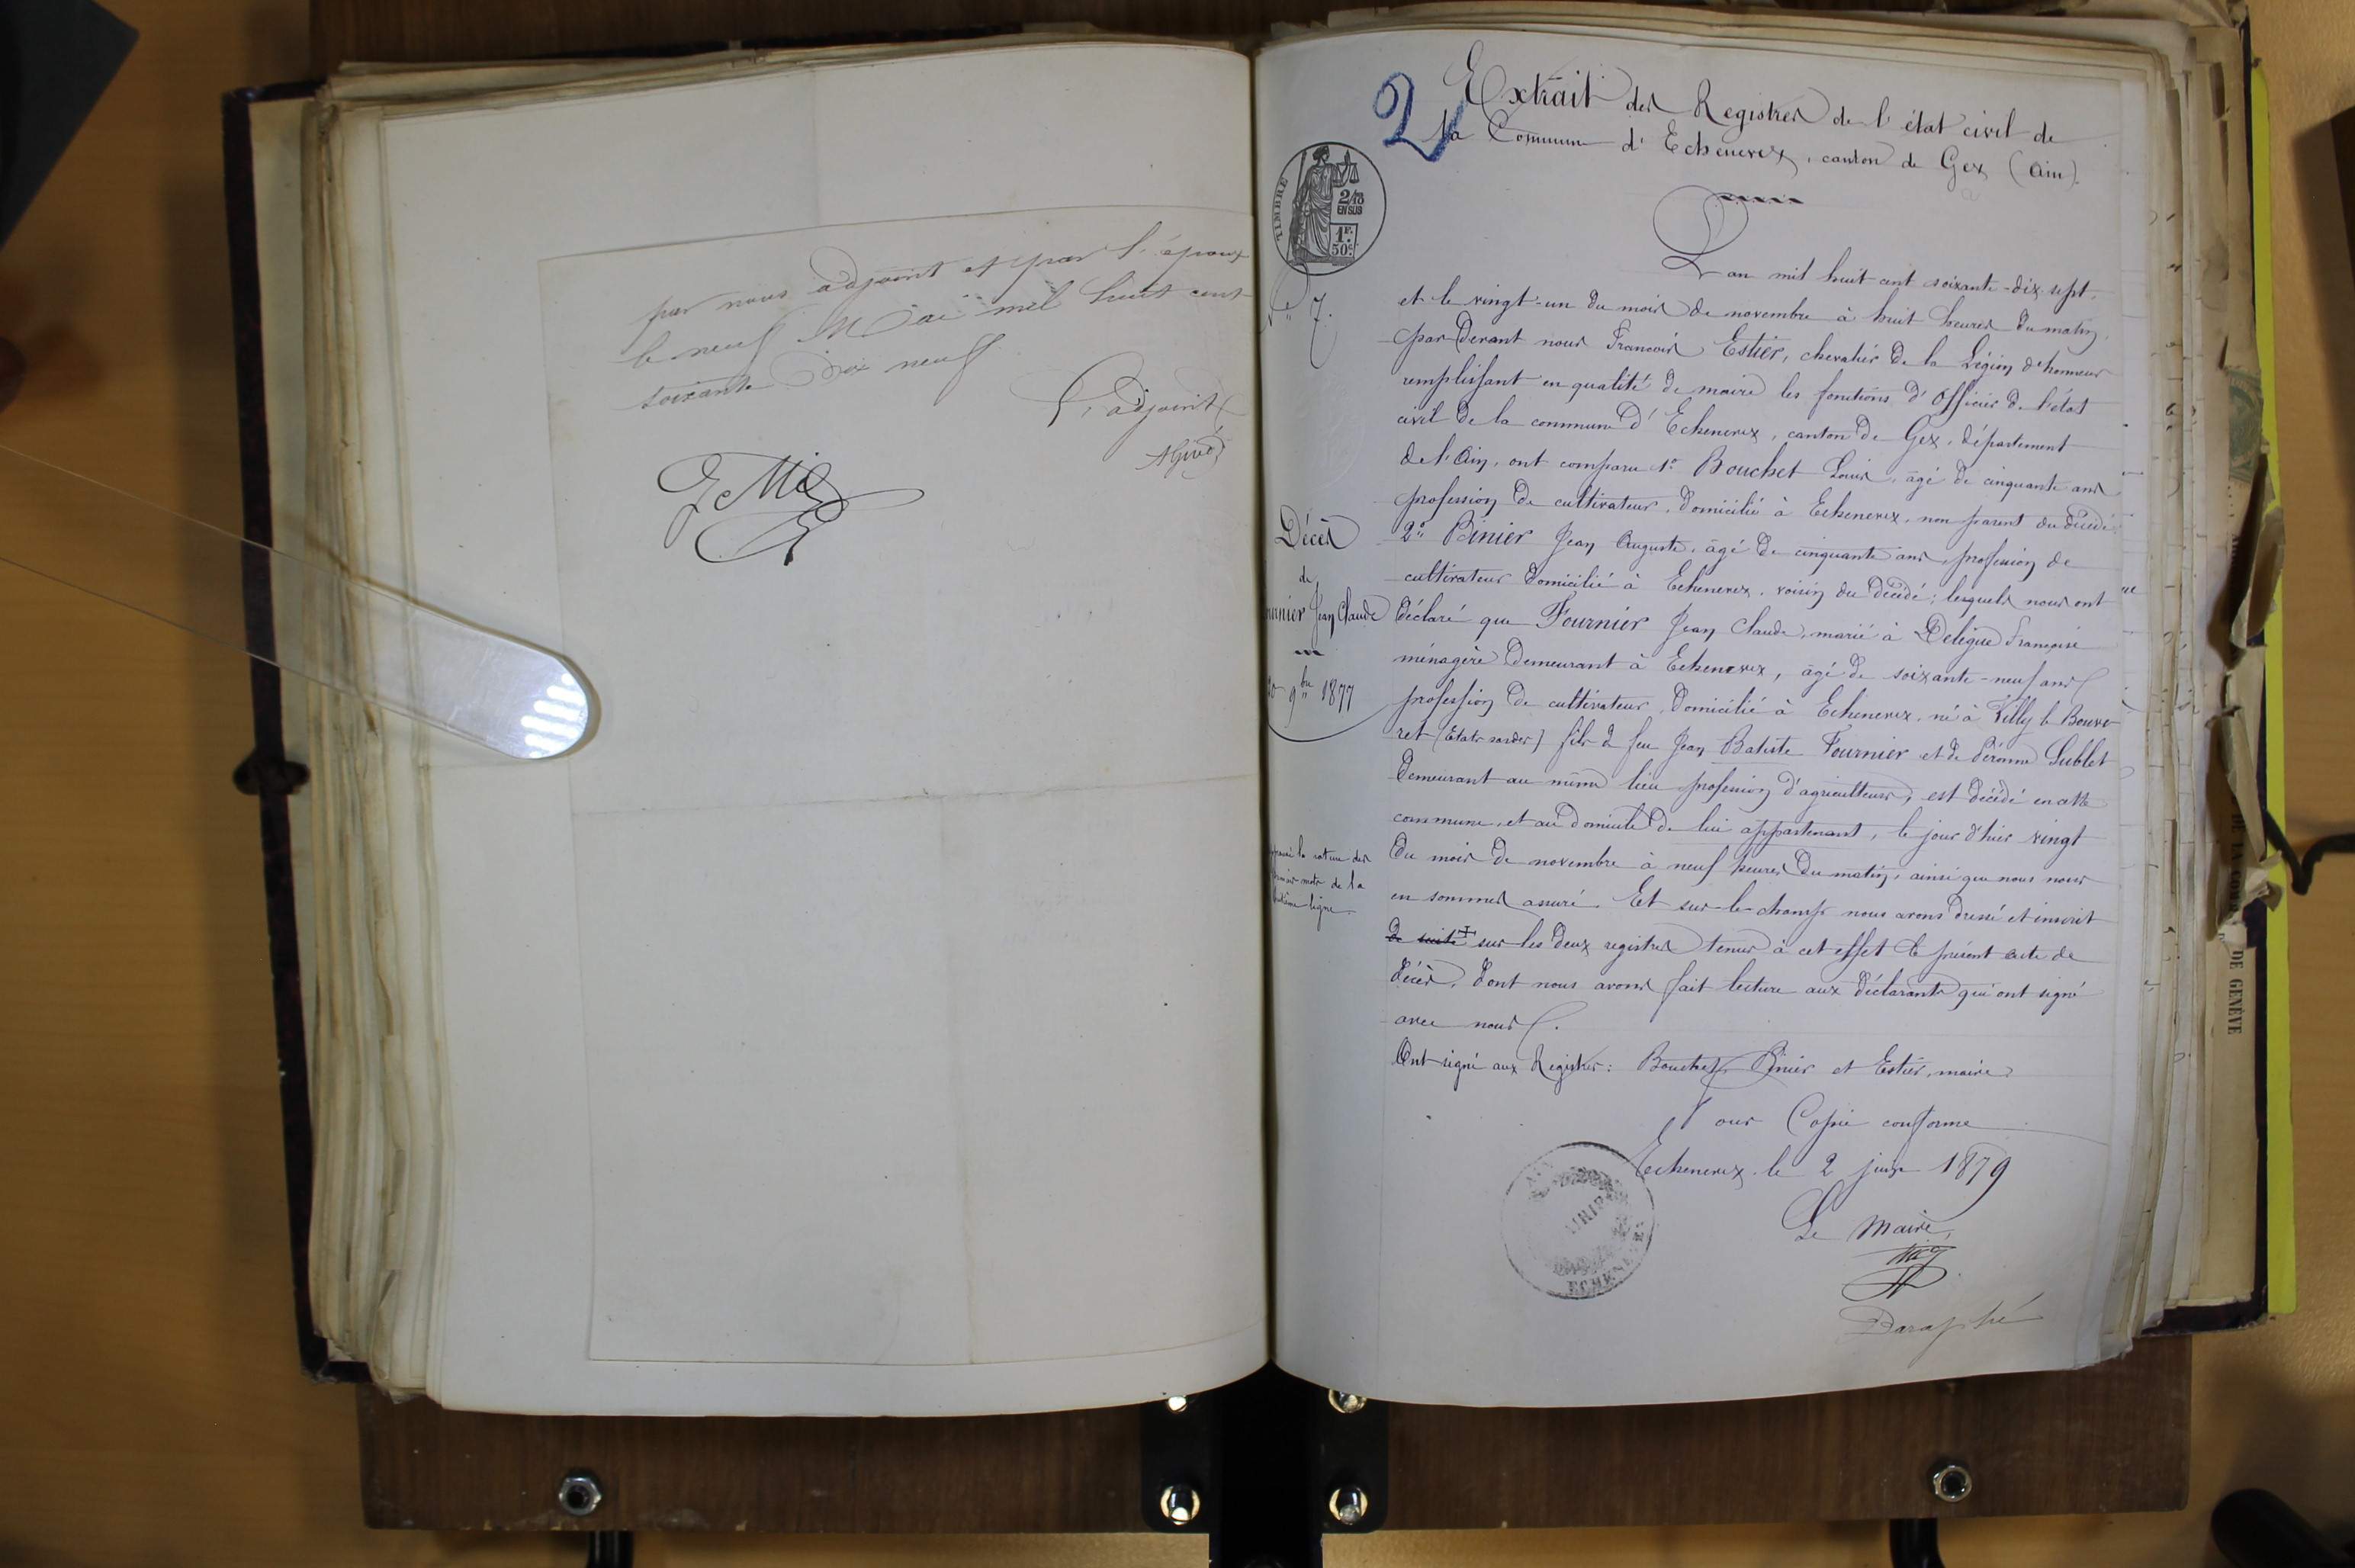 par nous adjoint et par l'époux
le neuf Mai mil huit cent
soixante Dix neuf
L'adjoint
2
Extrait des Registres de l'état civil de
la Commune d'Echenevex, canton de Gex (Ain).
TIMBRE
2/10
EN SUS
1F.
50c.
L'an mil huit cent soixante-dix-sept,
N° 7.
et le vingt-un du mois de novembre à huit heures du matin,
par Devant nous François Estier, chevalier de la Légion d'honneur
remplissant en qualité de maire les fonctions d'Officier de l'état
civil de la commune d'Echenevex, canton de Gex, département
de l'Ain, ont comparu 1° Bouchet Louis, âgé de cinquante ans
profession de cultivateur, domicilié à Echenevex, non parent du décédé
2° Binier Jean Auguste, âgé de cinquante ans, profession de
cultivateur domicilié à Echenevex, voisin du décédé; lesquels nous ont
déclaré que Fournier Jean Claude, marié à Deléglise Françoise
ménagère demeurant à Echenevex, âgé de soixante-neuf ans
profession de cultivateur, domicilié à Echenevex, né à Villy le Bouve-
ret (Etats sardes) fils de feu Jean Batiste Fournier et de Péronne Sublet
demeurant au même lieu profession d'agriculteurs, est décédé en cette
commune, et au domicile de lui appartenant, le jour d'hier vingt
du mois de novembre à neuf heures du matin, ainsi que nous nous
en sommes assuré. Et sur-le-champ nous avons dressé et inscrit
de suite + sur les deux registres tenus à cet effet le présent acte de
décès, dont nous avons fait lecture aux déclarants qui ont signé
avec nous.
Décès
de
Jean Claude
9bre 1877
la rature des
mots de la
ligne
Ont signé aux Registres: Bouchet, Binier et Estier, maire
Pour Copie conforme
Echenevex le 2 juin 1879
Le Maire,
Paraphé
DE GENÈVE